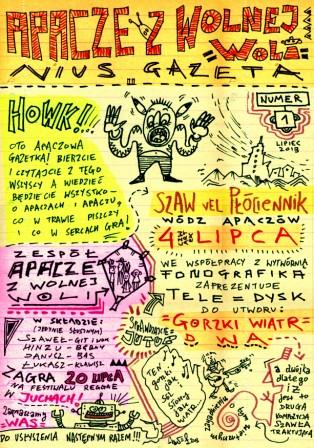 APACZE Z WOLNEJ
WOLI
NIUS GAZETA
HOWK!!!
OTO APACZOWA
GAZETKA! BIERZCIE
I CZYTAJCIE Z TEGO
WSZYSCY A WIEDZIEĆ
BĘDZIECIE WSZYSTKO
O APACZACH I APACZU,
CO W TRAWIE PISZCZY
I CO W SERCACH GRA!
NUMER
1
LIPIEC
2013
SZAW VEL PŁÓCIENNIK
WÓDZ APACZÓW
4 LIPCA
WE WSPÓŁPRACY Z WYTWÓRNIĄ
FONOGRAFIKA
ZAPREZENTUJE
TELEDYSK
DO UTWORU:
"GORZKI WIATR
DWA"
ZESPÓŁ
APACZE
Z WOLNEJ
WOLI
W SKŁADZIE:
SZAWEŁ - GIT I WOK
HINZU - BĘBNY
DANIEL - BAS
ŁUKASZ - KLAWISZ
ZAGRA 20 LIPCA
NA FESTIWALU REGGAE
W JUCHACH!
ZAPRASZAMY
WAS!
DO USŁYSZENIA NASTĘPNYM RAZEM!!!
SPRAWDZAJCIE
TUTAJ
TEN
GORZKI
JAK
WIATR
A DWÓJKA
DLATEGO
IŻ
JEST TO
DRUGA
KOMPOZYCJA
SŁAWKA
TRAKTUJĄCA